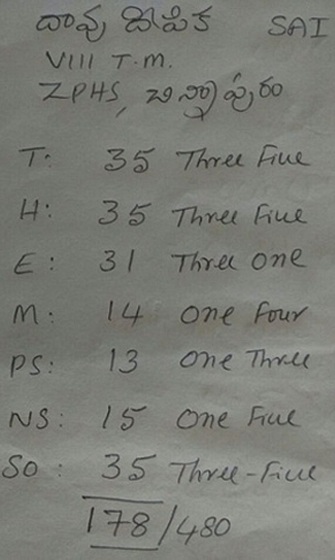 దావు దీపిక SAI
VIII T.M.
ZPHS, చిన్నాపురం
T: 35 Three Five
H: 35 Three Five
E: 31 Three One
M: 14 One Four
PS: 13 One Three
NS: 15 One Five
SO: 35 Three-Five
178/480